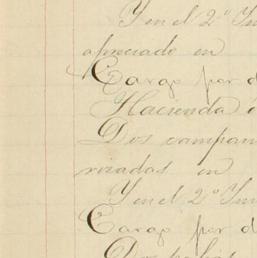 Y en el 2º In
apreciado en
Cargo por d
Hacienda
Dos campan
en
Y en el 2º In
Cargo por d
Dos